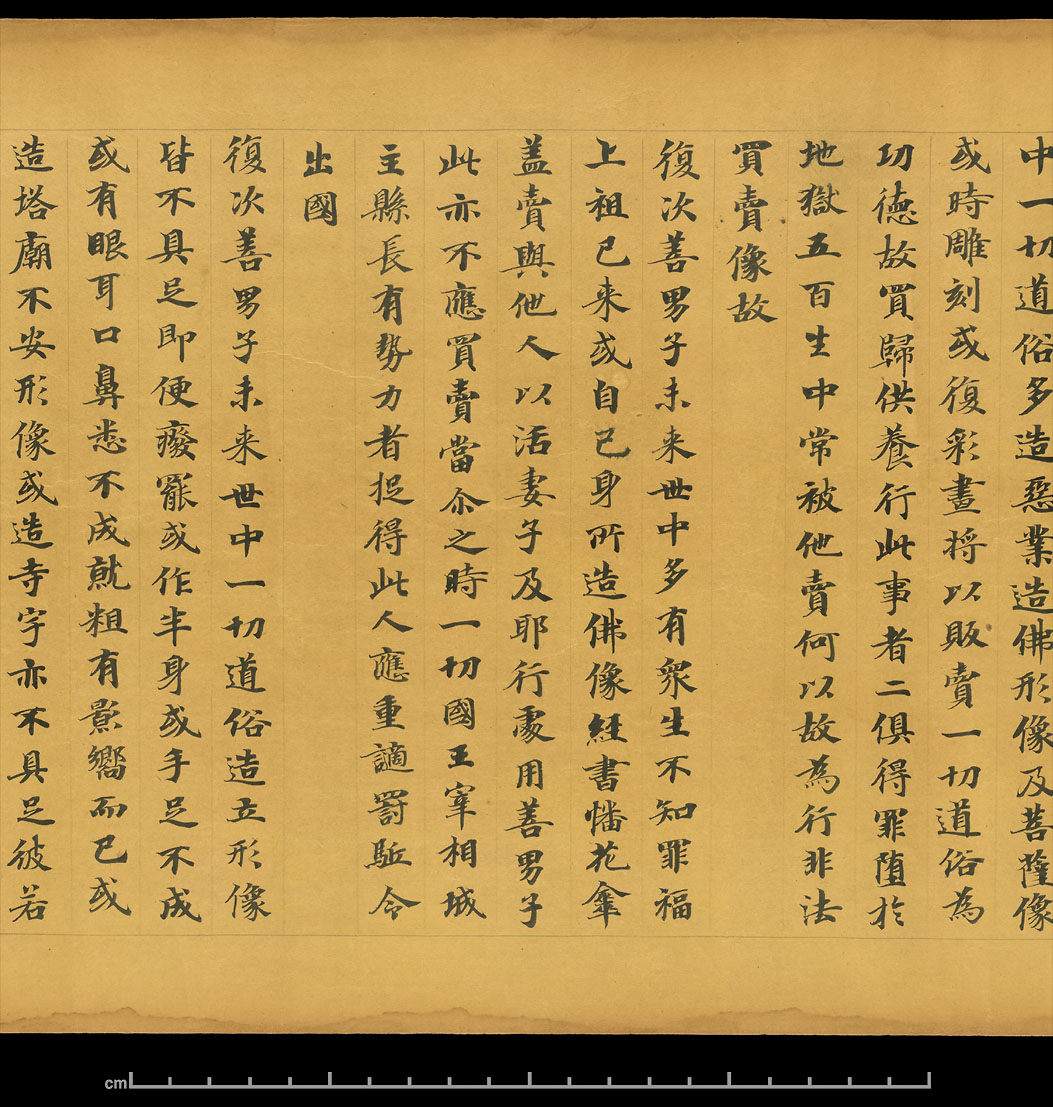 中一切道俗多造惡業造佛形像及菩薩像
或時雕刻或復彩畫将以販賣一切道俗為
功徳故買歸供養行此事者二俱得罪堕於
地獄五百生中常被他賣何以故為行非法
買賣像故
復次善男子未来世中多有衆生不知罪福
上祖已来或自己身所造佛像経書幡花傘
盖賣與他人以活妻子及耶行處用善男子
此亦不應買賣當尒之時一切國王宰相城
主縣長有勢力者捉得此人應重謫罸駈令
出國
復次善男子未来世中一切道俗造立形像
皆不具足即便癈罷或作半身或手足不成
或有眼耳口鼻悉不成就粗有影嚮而已或
造塔廟不安形像或造寺宇亦不具足彼若
cm